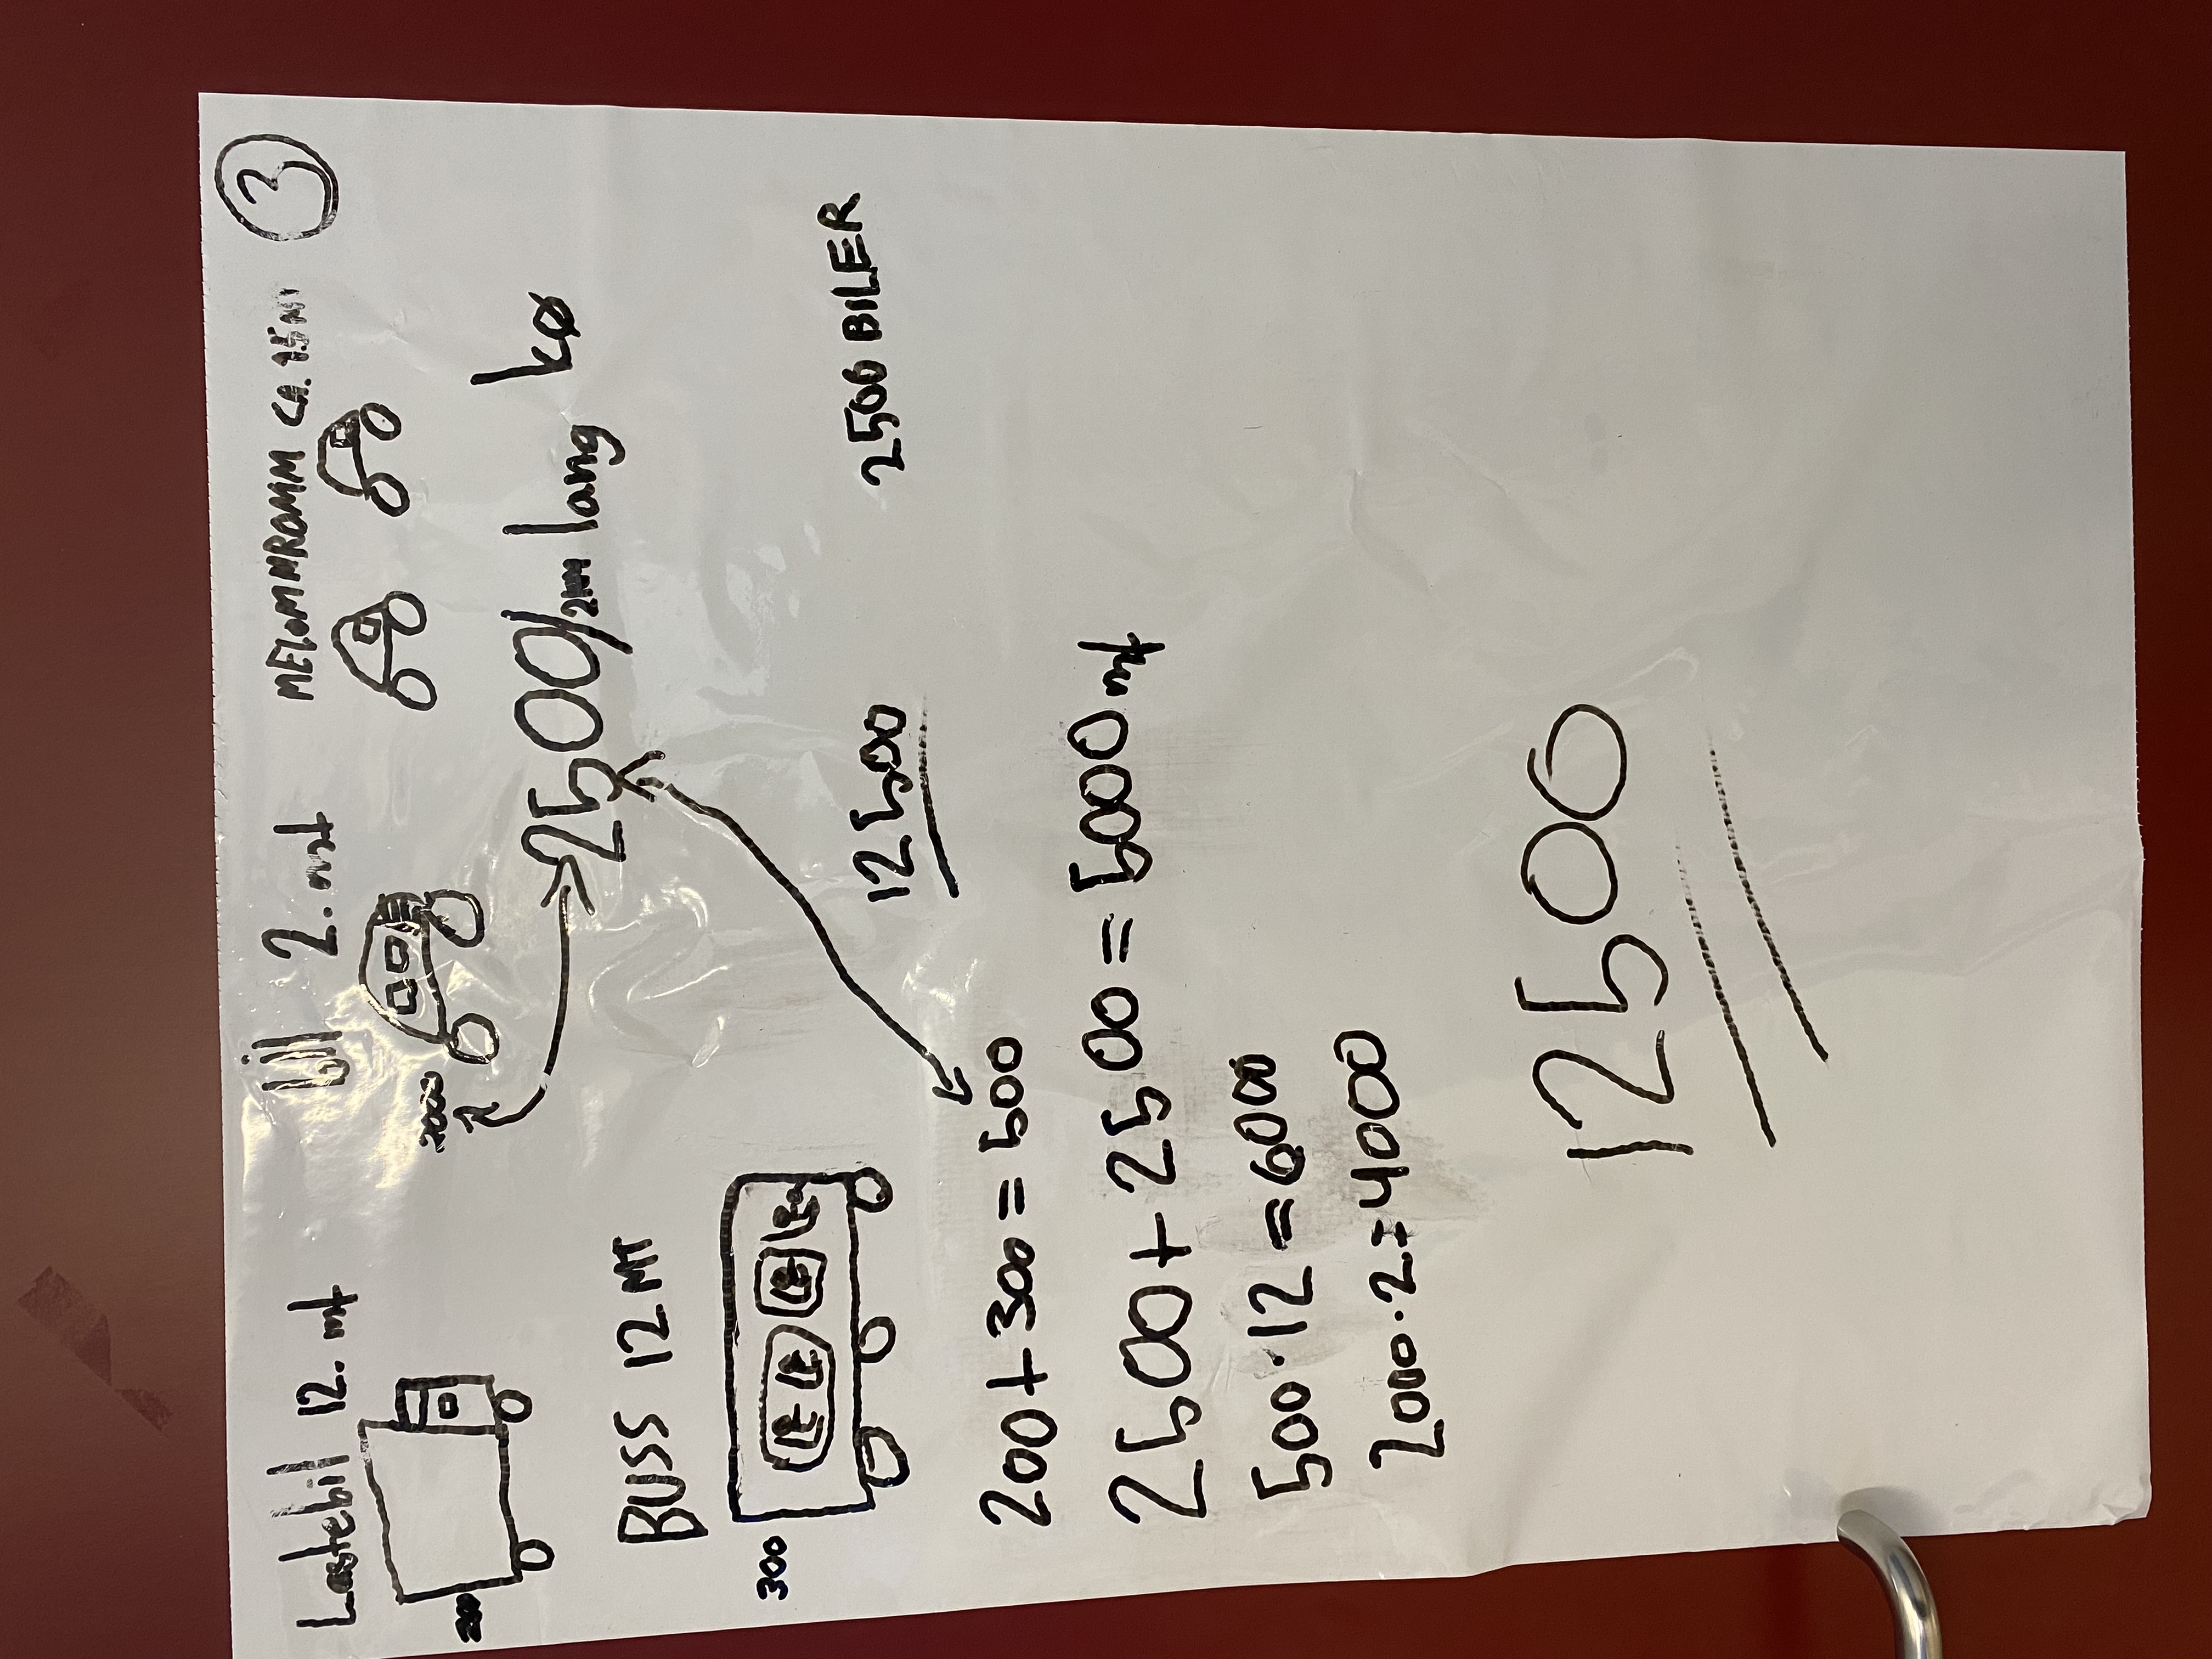 3
Lastebil 12. mt
bil 2. mt
MELOMMROMM CA. 1.5 MT
200
2000
2500/2m lang kø
BUSS 12 MT
300
12500
2500 BILER
200 + 300 = 500
2500 + 2500 = 5000 mt
500 · 12 = 6000
2000 · 2 = 4000
12500